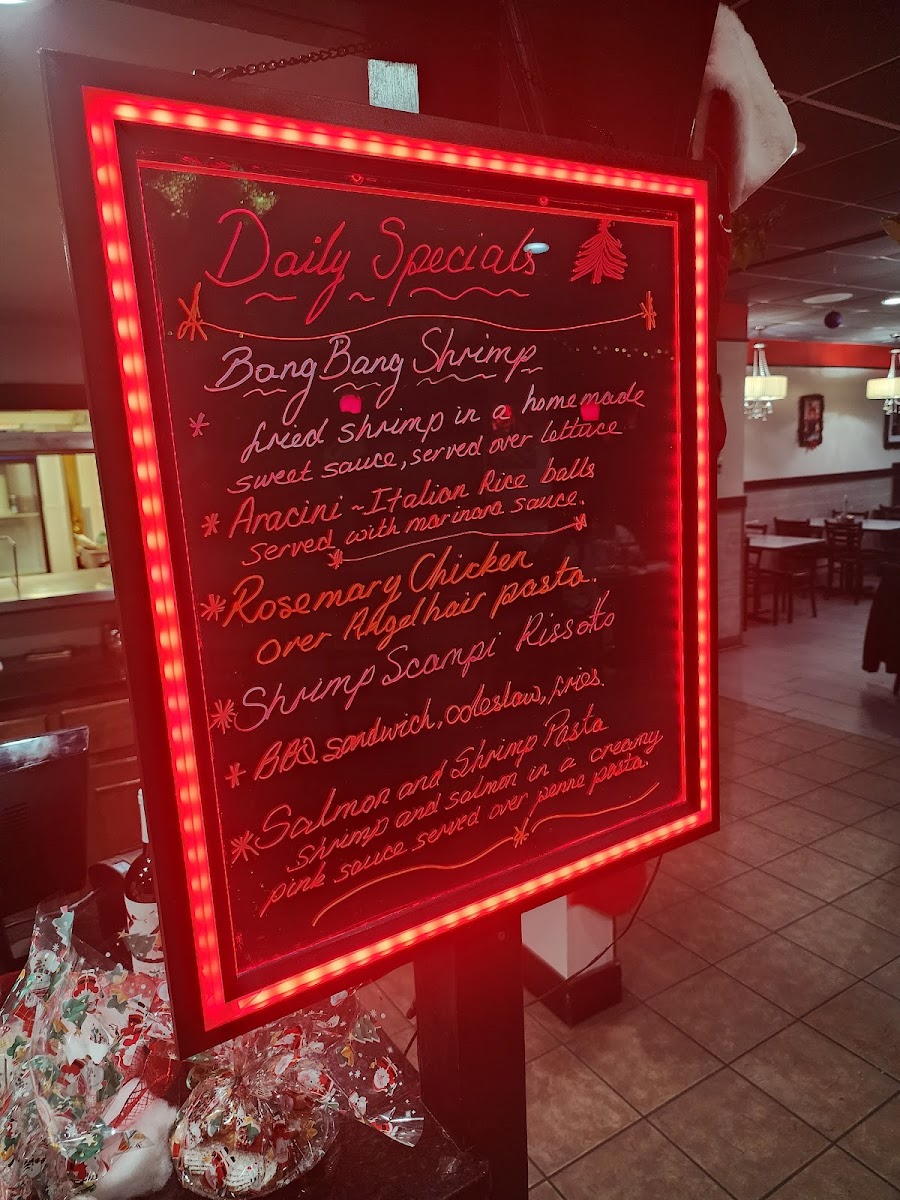 Daily Specials
Bang Bang Shrimp
* fried shrimp in a homemade
sweet sauce, served over lettuce
* Aracini ~ Italian Rice balls
served with marinara sauce.
* Rosemary Chicken
over Angelhair pasta.
* Shrimp Scampi Rissotto
* BBQ sandwich, coleslaw, fries.
* Salmon and Shrimp Pasta
shrimp and salmon in a creamy
pink sauce served over penne pasta.